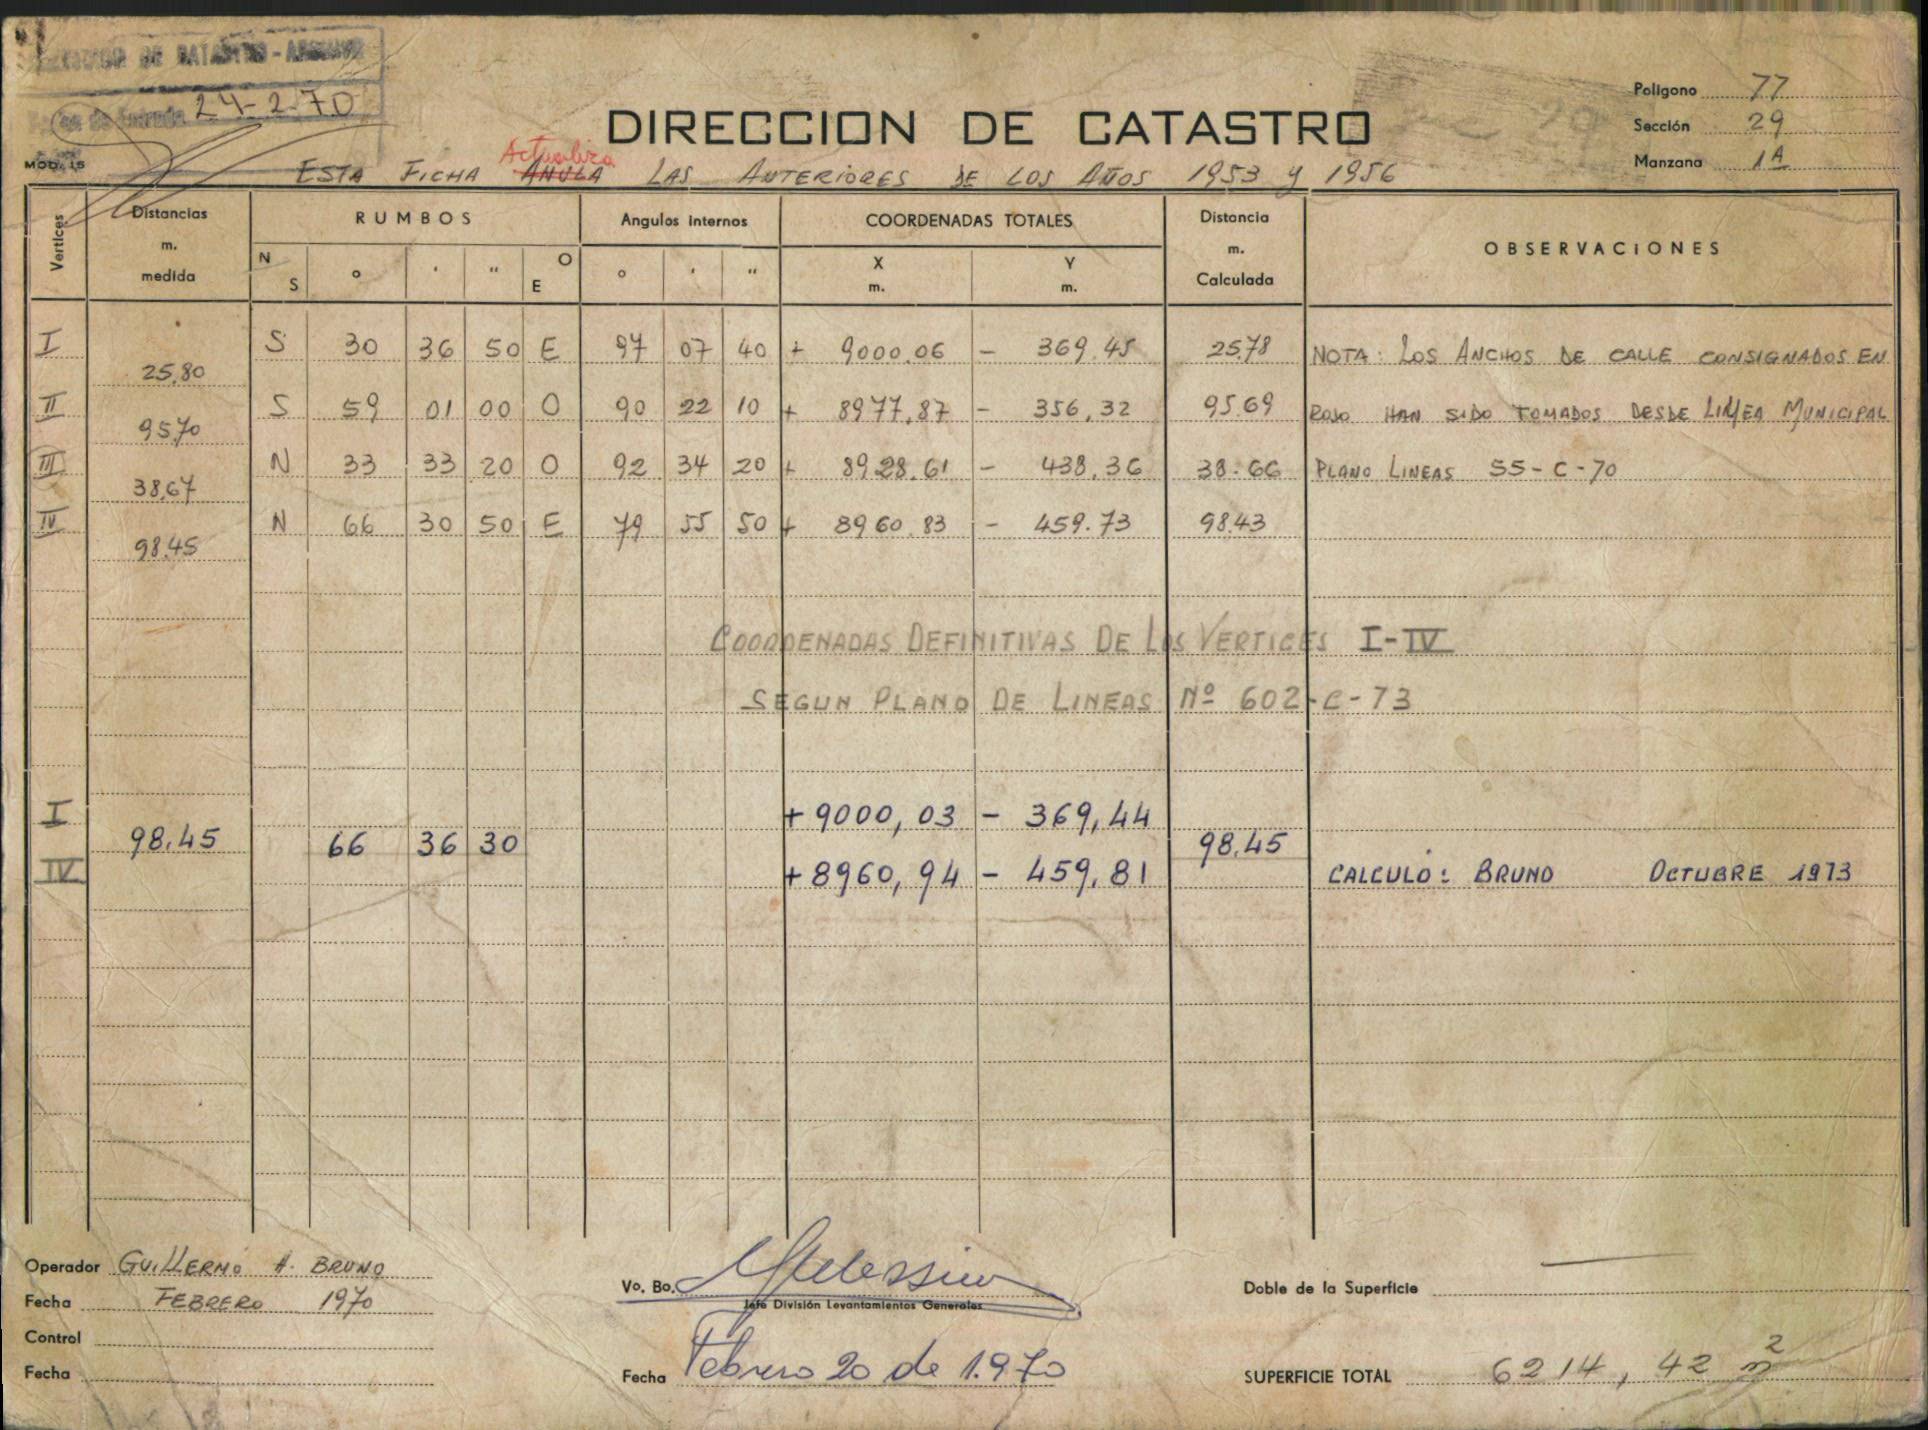 DIRECCION DE CATASTRO - ARCHIVO
Fecha de Entrada 24-2-70
MOD. 15
DIRECCION DE CATASTRO
Poligono 77
Sección 29
Manzana 1A
Actualiza
ESTA FICHA ANULA LAS ANTERIORES DE LOS AÑOS 1953 y 1956
Vertices
Distancias m. medida
RUMBOS
N S o ' " O E
Angulos internos
o ' "
COORDENADAS TOTALES
X m. Y m.
Distancia m. Calculada
OBSERVACIONES
I S 30 36 50 E 97 07 40 + 9000.06 - 369.45 25.78 NOTA: LOS ANCHOS DE CALLE CONSIGNADOS EN
25,80
II S 59 01 00 O 90 22 10 + 8977,87 - 356,32 95.69 ROJO HAN SIDO TOMADOS DESDE LINEA MUNICIPAL
95,70
III N 33 33 20 O 92 34 20 + 8928.61 - 438,36 38.66 PLANO LINEAS 55-C-70
38,67
IV N 66 30 50 E 79 55 50 + 8960.83 - 459.73 98.43
98.45
COORDENADAS DEFINITIVAS DE LOS VERTICES I-IV
SEGUN PLANO DE LINEAS Nº 602-C-73
I +9000,03 - 369,44
98.45 66 36 30 98.45
IV +8960,94 - 459,81 CALCULO: BRUNO OCTUBRE 1973
Operador GUILLERMO A. BRUNO
Fecha FEBRERO 1970
Control
Fecha
Vo. Bo.
Jefe División Levantamientos Generales
Fecha Febrero 20 de 1.970
Doble de la Superficie
SUPERFICIE TOTAL 6214,42 m2